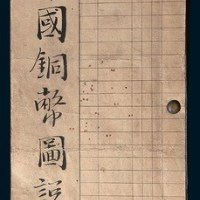 國銅幣圖説